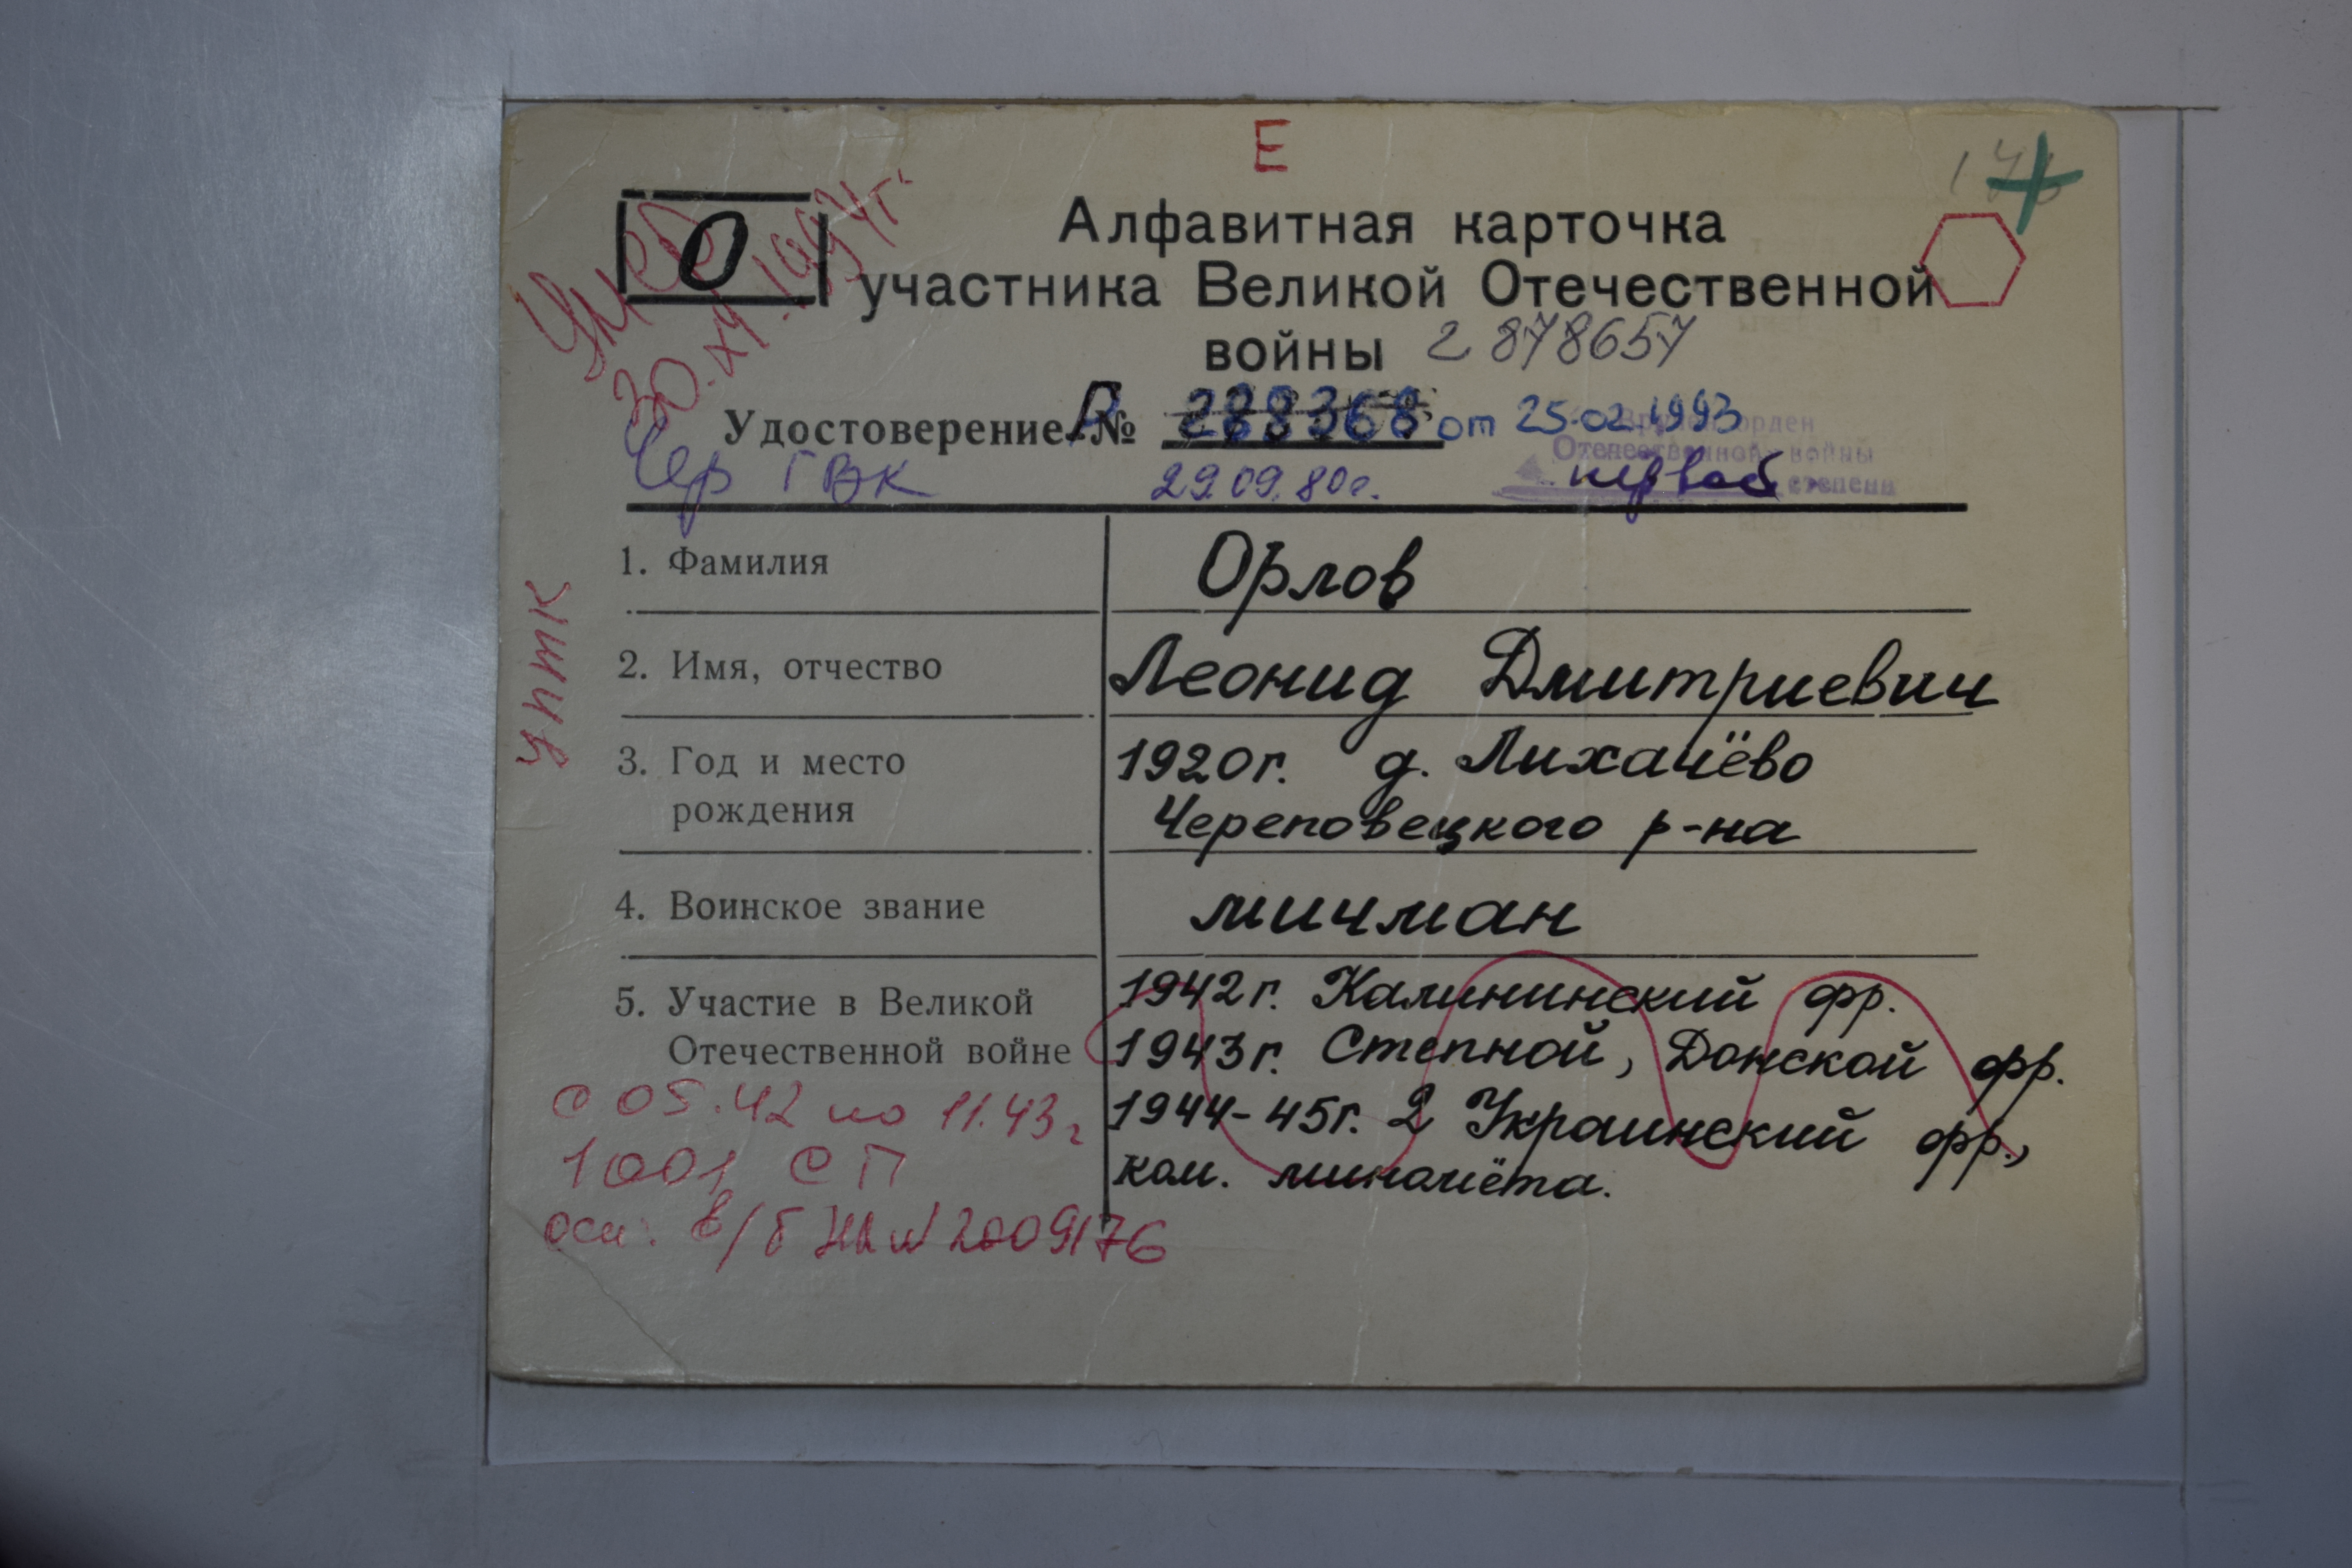 Е
О
Умер
30.XI.1994г.
Алфавитная карточка
участника Великой Отечественной
войны 2 878657
Удостоверение № от 25.02.1993
Вручен орден
Отечественной войны
первой степени
Чер ГВК 29.09.80г.
1. Фамилия Орлов
2. Имя, отчество Леонид Дмитриевич
3. Год и место рождения 1920г. д. Лихачёво
Череповецкого р-на
4. Воинское звание мичман
5. Участие в Великой
Отечественной войне
1942г. Калининский фр.
1943г. Степной, Донской фр.
1944-45г. 2 Украинский фр.,
ком. миномёта.
с 05.42 по 11.43г
1001 СП
осн. в/б НИ № 2009176
уптк